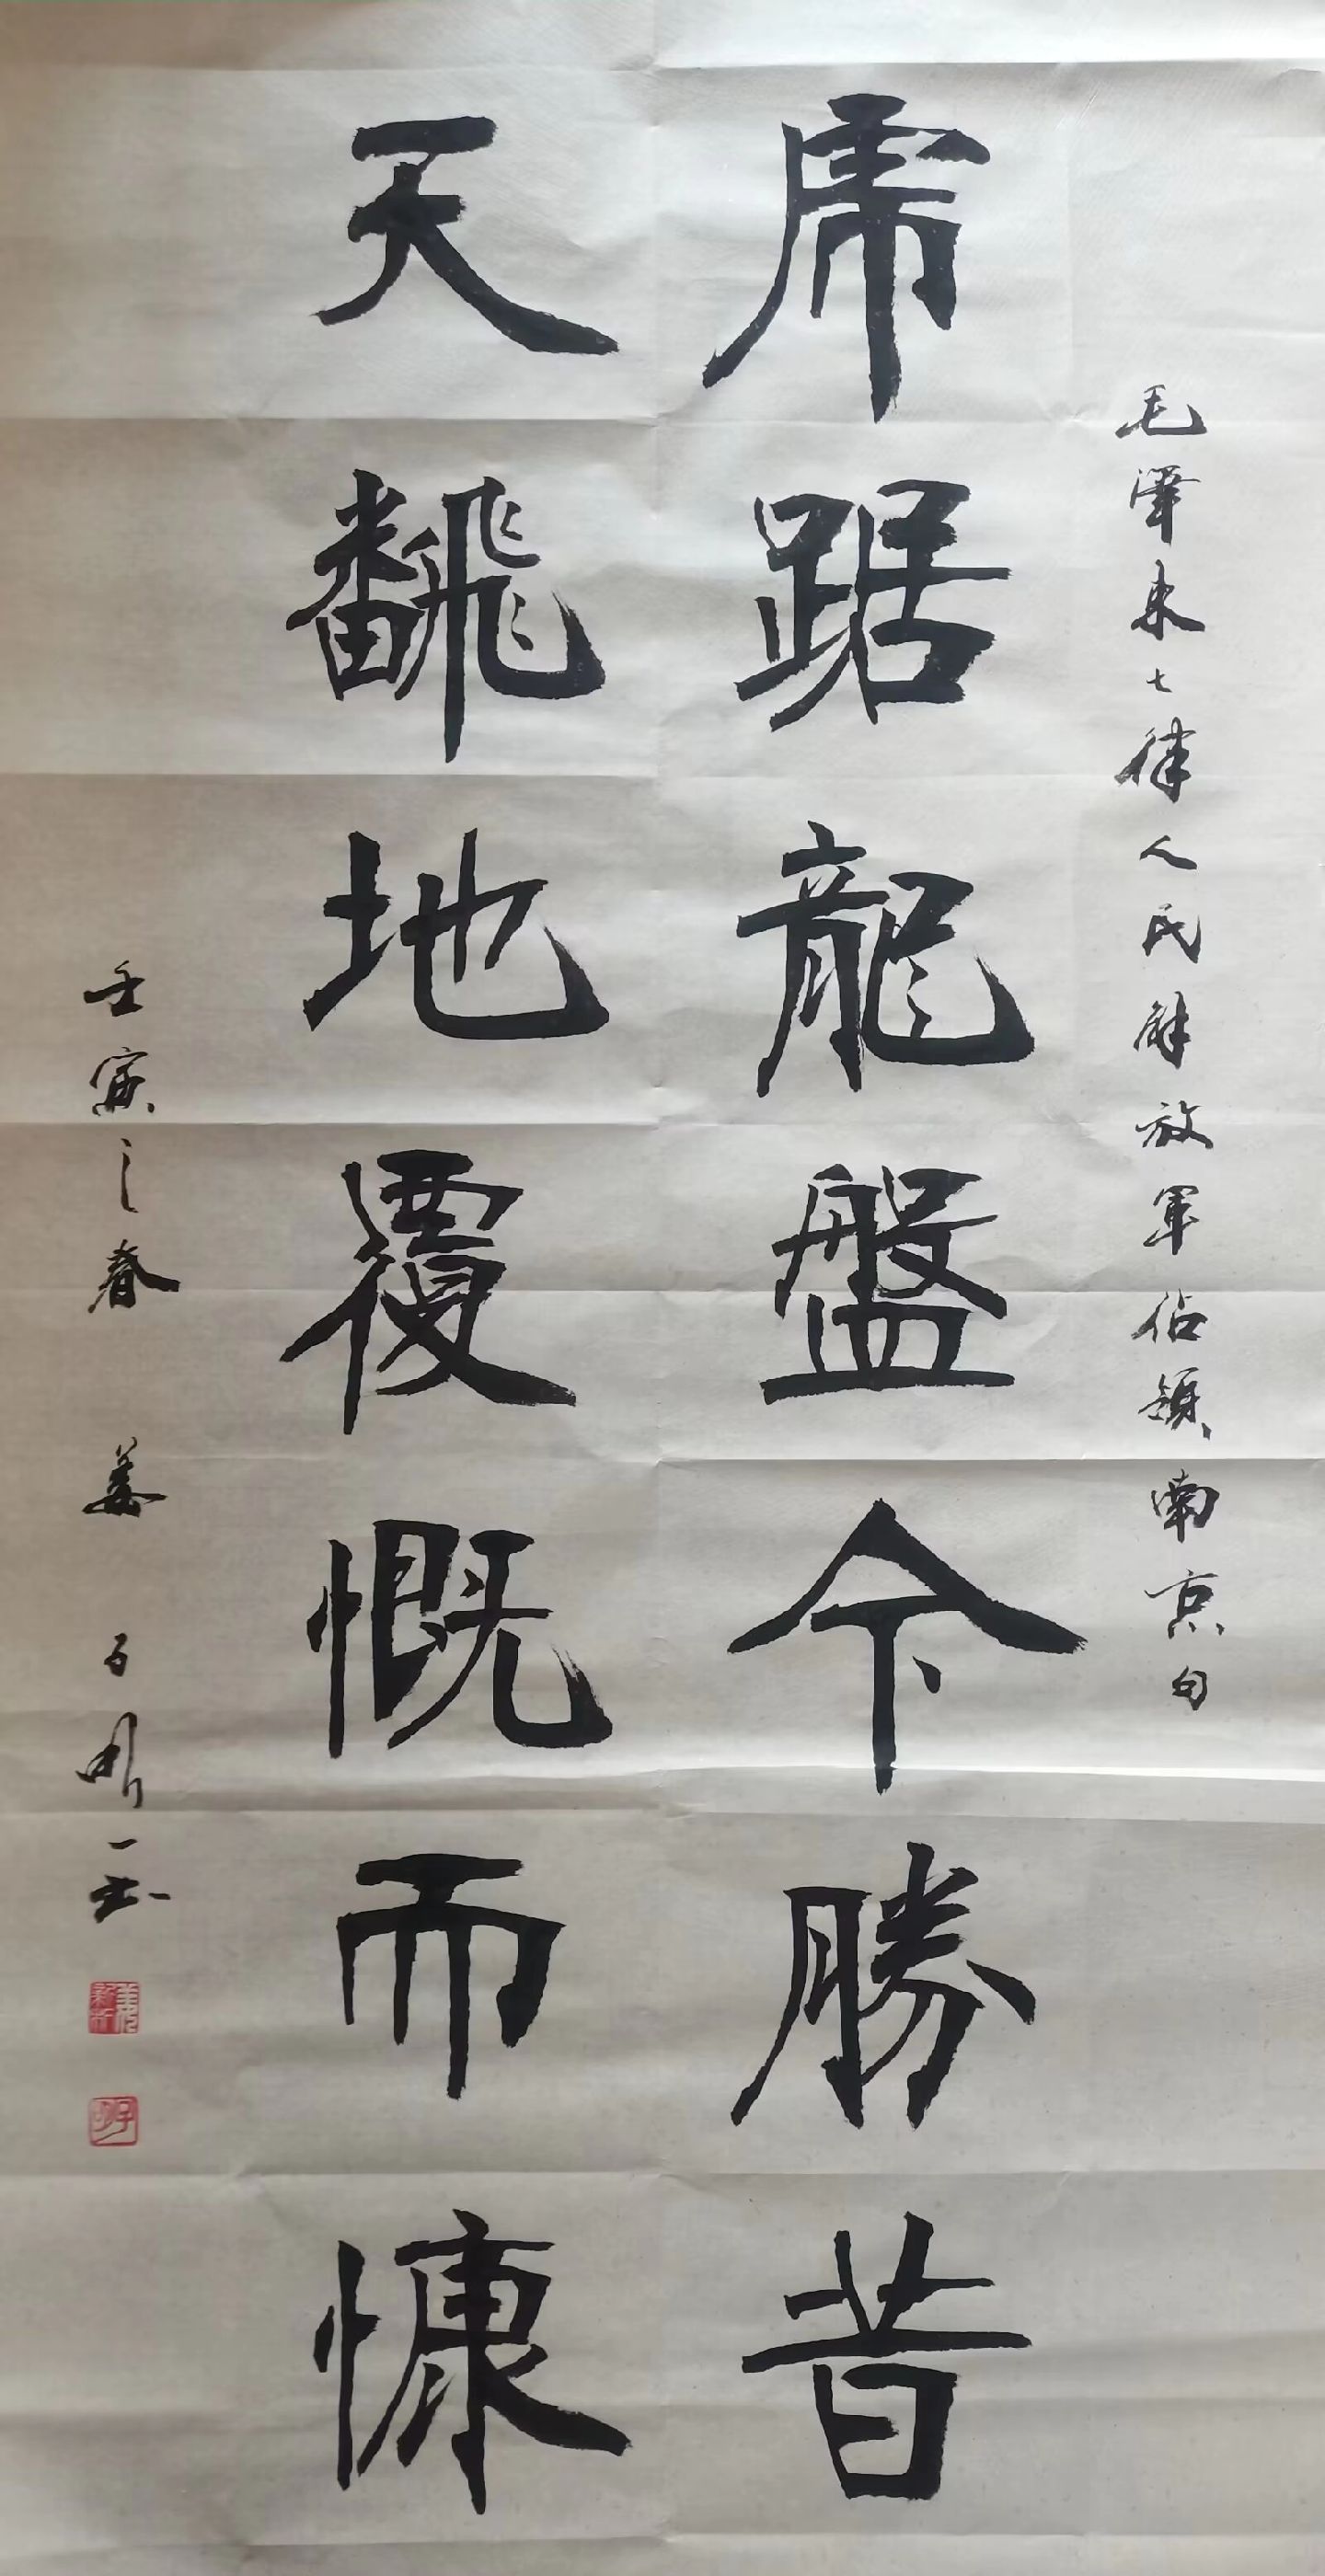 毛澤东七律人民解放軍佔領南京句
虎踞龍盤今勝昔
天飜地覆慨而慷
壬寅之春 姜